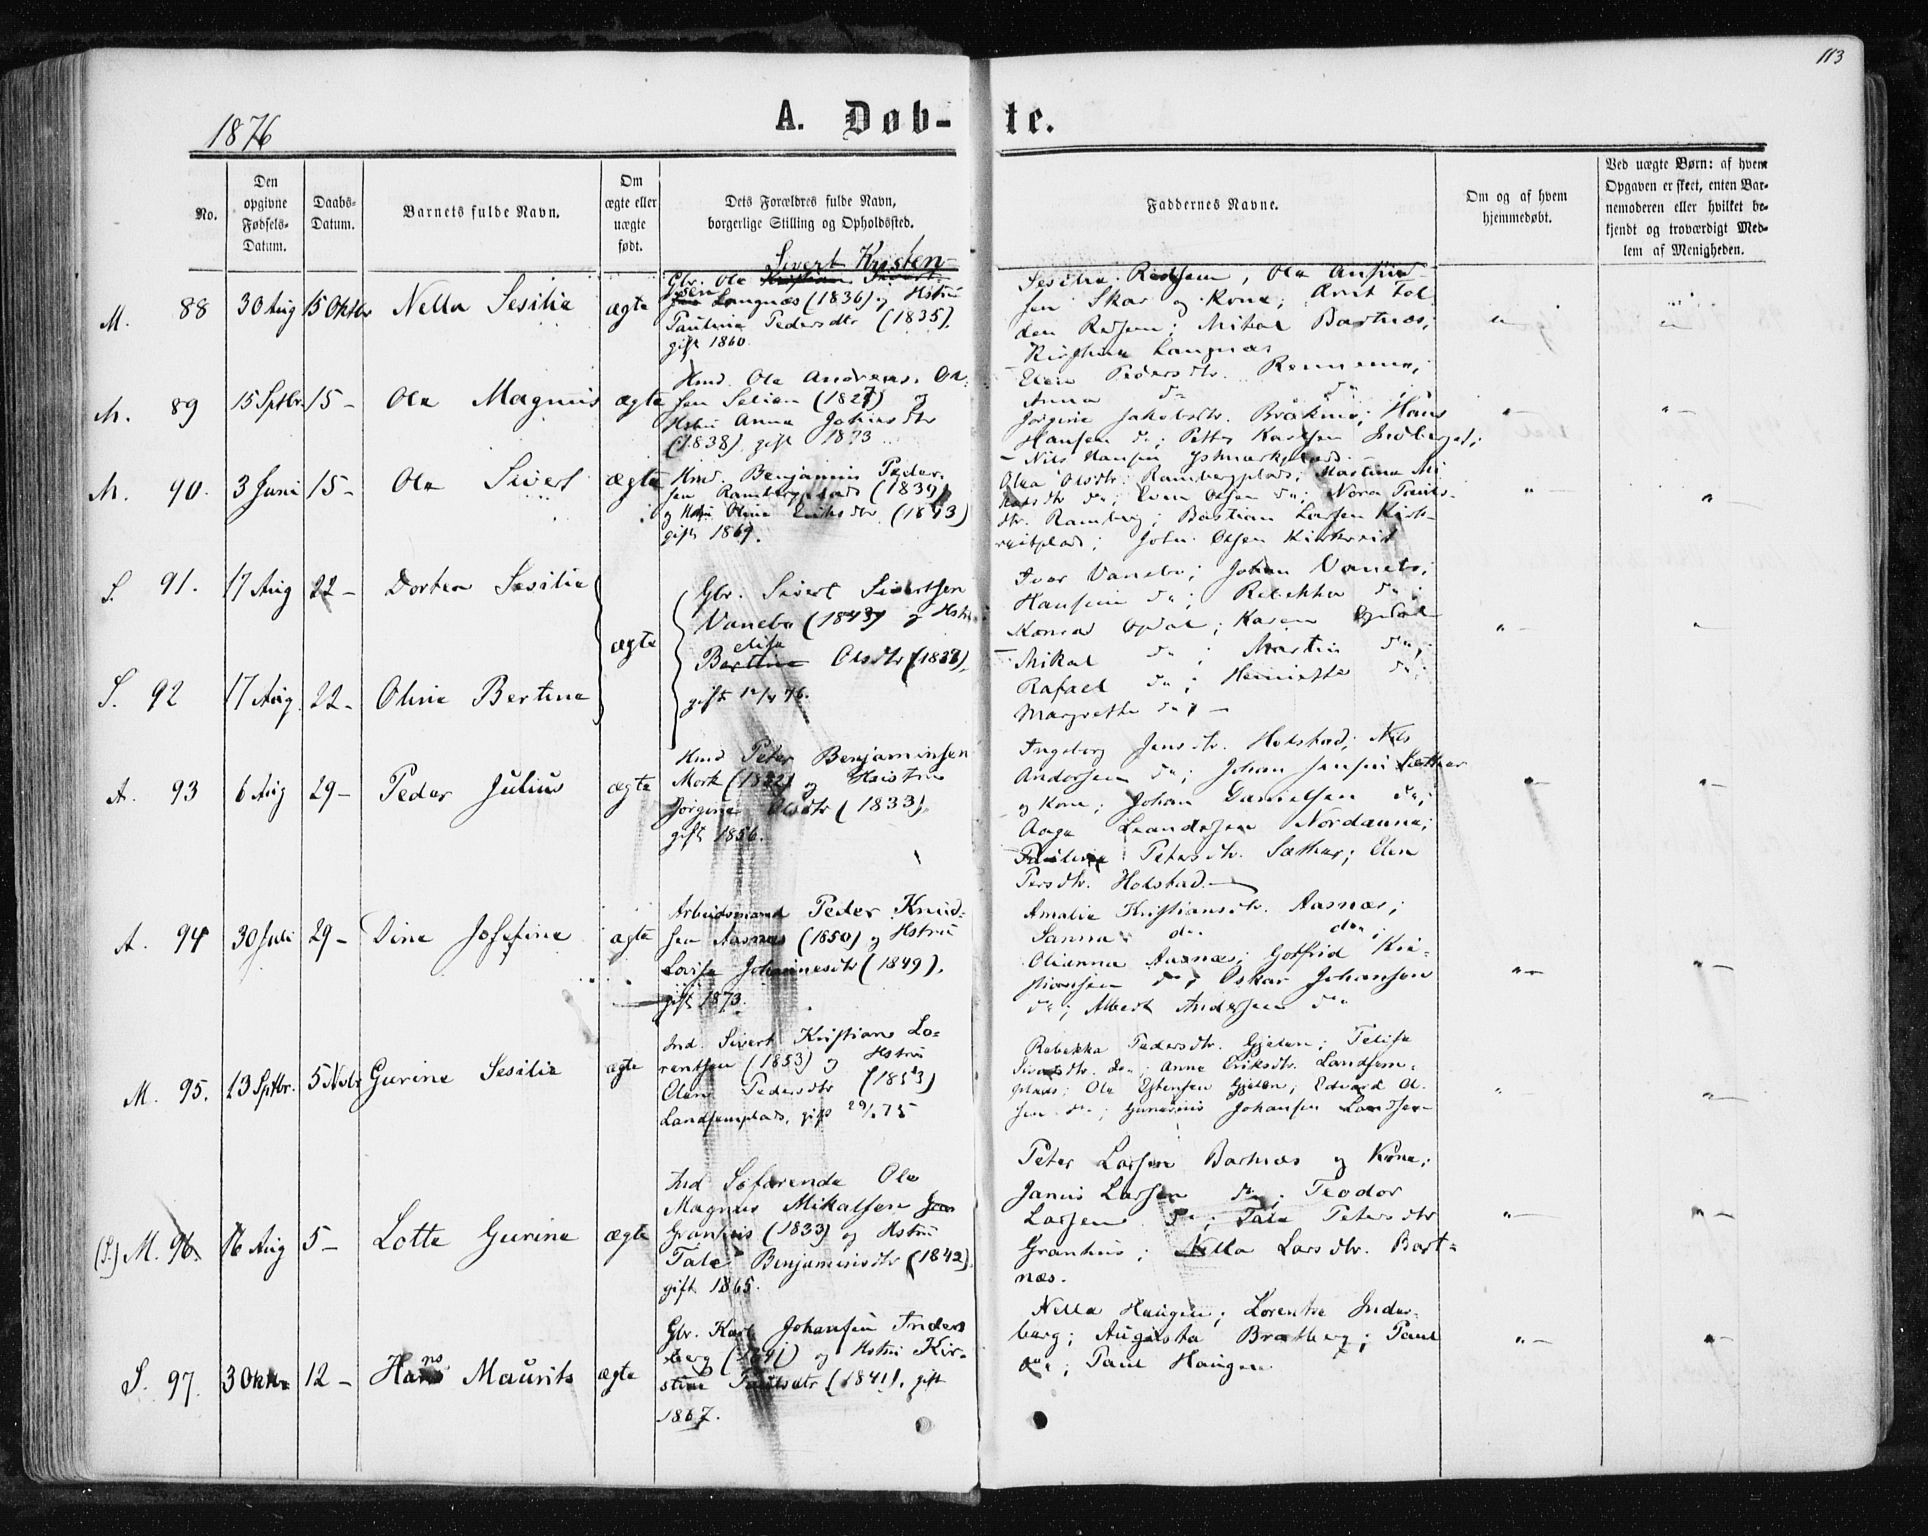 113
1876
A. Døb-te.
No.
Den opgivne Fødsels-Datum.
Daabs-Datum.
Barnets fulde Navn.
Om ægte eller uægte født.
Dets Forældres fulde Navn,
borgerlige Stilling og Opholdssted.
Faddernes Navne.
Om og af hvem
hjemmedøbt.
Ved uægte Børn: af hvem
Opgaven er skeet, enten Bar-
nemoderen eller hvilket be-
kjendt og troværdigt Med-
lem af Menigheden.
M. 88 30 Aug 15 Oktbr Nella Sesilie ægte
Sivert Kristen-
Gbr. Ola
sen Langnæs (1836) og Hstru
Paulina Pedersdtr (1835),
gift 1860.
Sesilie Redsem, Ola
sen Skar og Kone; Arnt Tol
Mikal Bartnæs;
Langnæs
M. 89 15 Sptbr. 15- Ole Magnus ægte
Hmd. Ole Andreas
sen Selian (1827) og
Hstru Anna Johnsdtr
(1838), gift 1873
Elen Pedersdtr. Rennemo;
Anna do do
Jørgine Jakobsdtr. Hans
Hansen do; Petter Karlsen
Nils Hansen
M. 90. 3 Juni 15- Ole Sivert ægte
Hmd. Benjamin Peder-
sen Rambergplads (1839)
og Hstru Oline Eriksdtr (1843)
gift 1869.
Olsdtr. Rambergplads; Martina Mi
kalsdtr do; Even Olsen do; Nora Pauls-
dtr. Ramberg; Bastian Larsen Kirk-
reitplads; John Olsen Kirkreit
S. 91. 17 Aug 22- Dortea Sesilie
ægte
Gbr. Sivert Sivertsen
Vanebo (1843) og Hstru
Elisa
Bertine Olsdtr (1838),
gift 12/4 76.
Ivar Vanebo; Johan Vanebo;
Hansine do; Rebekka do;
Konrad Opdal; Karen Opdal
Mikal do; Martin do;
Rafael do; Henriette do;
Margrethe do; -
S. 92 17 Aug. 22- Oline Bertine
A. 93 6 Aug 29- Peder Julius ægte
Hmd Peter Benjaminsen
Mork (1832) og Hustru
Jørgine Olsdtr (1833)
gift 1856.
Ingeborg Jensdtr. Holstad; Nils
Andersen do; Johan Jensen Sæther
og Kone; Johan Danielsen do;
Aage Leandersen Nordanne;
Pauline Petersdtr. Sæther; Elen
Persdtr. Holstad.
A. 94 30 Juli 29- Dine Josefine ægte
Arbeidsmand Peder Knud-
sen Aasnæs (1850) og Hstru
Lovise Johannesdtr (1849),
gift 1873.
Amalie Kristiansdtr. Aasnæs;
Sanna do do;
Olianna Aasnæs; Gotfrid Kri-
stiansen do; Oskar Johansen
do; Albert Andersen do
M. 95. 13 Sptbr. 5 Novbr Gurine Sesilie ægte
Ind. Sivert Kristian Lo-
rentsen (1853) og Hstru
Oline Pedersdtr (1853)
Landsemplads, gift 75
Rebekka Pedersdtr. Gjelen; Felisa
Sivertsdtr. do; Anne Eriksdtr. Landsem-
plads; Ole Estensen Gjelen; Edvard Ol-
sen do; Johansen Landsem
(S.) M. 96. 16 Aug 5- Lotte Gurine ægte
Ind Søfarende Ole
Magnus Mikalsen
Granhus (1833) og Hstru
Tale Benjaminsdtr (1842),
gift 1865.
Peter Larsen Bartnæs og Kone;
Janus Larsen do; Teodor
Larsen do; Tale Petersdtr
Granhus; Nella Larsdtr. Bart-
næs.
S. 97. 3 Oktbr 12- Hans Maurits ægte
Gbr. Karl Johansen Inder
berg (1841) og Hstru Kir-
stine Paulsdtr (1841), gift
1867.
Nella Haugen; Lorentse Inder-
berg; Augusta Bratberg; Paul
do; Paul Haugen